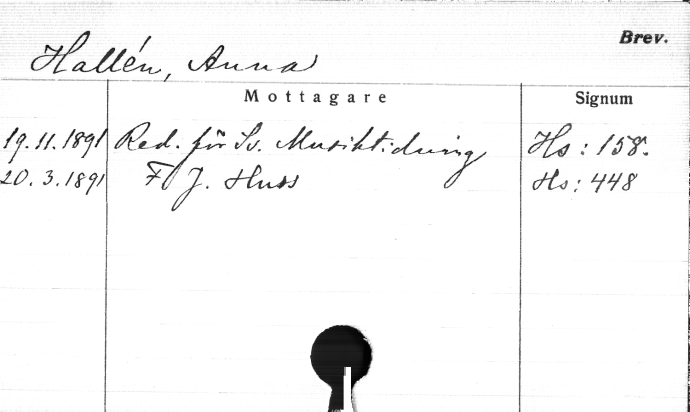 Brev.
Hallén, Anna
Mottagare Signum
19.11.1891 Red. för Sv. Musiktidning Hs: 158.
20.3.1891 F J. Huss Hs: 448